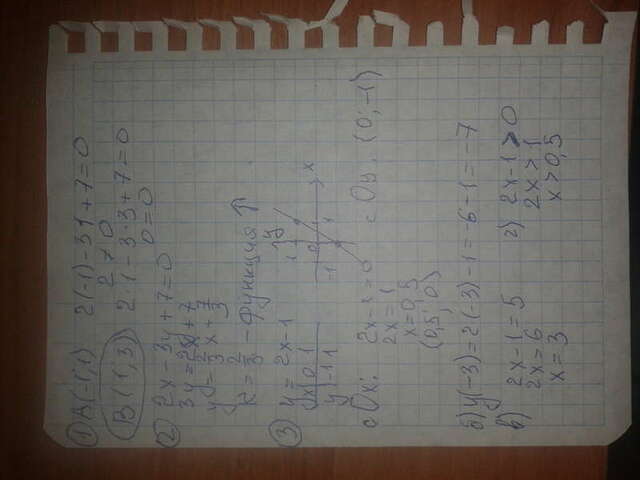 ① A(-1; 1) 2(-1)-3·1+7=0
2≠0
В(1; 3) 2·1-3·3+7=0
0=0
② 2x-3y+7=0
3y=2x+7
y=2/3x+7/3
k=2/3-функция ↑
③ y=2x-1
x|0 1
y|-1 1
y
x
1
0
1
-1
с Ox: 2x-1=0
2x=1
x=0,5
(0,5; 0)
с Oy, (0; -1)
б) y(-3)=2(-3)-1=-6-1=-7
в) 2x-1=5
2x=6
x=3
г) 2x-1>0
2x>1
x>0,5